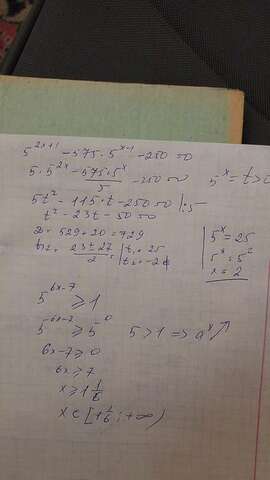 5^{2x+1} - 575 · 5^{x-1} - 250 = 0
5 · 5^{2x} - \frac{575 · 5^x}{5} - 250 = 0    5^x = t > 0
5t² - 115 · t - 250 = 0 | : 5
t² - 23t - 50 = 0
D = 529 + 20 = 729
t_{1,2} = \frac{23 ± 27}{2} = | t_1 = 25
t_2 = -2
5^x = 25
5^x = 5²
x = 2
5^{6x-7} ≥ 1
5^{6x-7} ≥ 5^0    5 > 1 => a^x ↗
6x - 7 ≥ 0
6x ≥ 7
x ≥ 1\frac{1}{6}
x ∈ [1\frac{1}{6}; +∞)